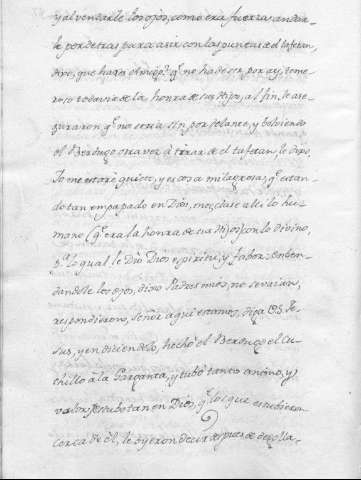 y al vendarle los ojos, como era fuerza andar-
le por detras para asir con las puntas de el tafetan,
dixo, que haceis amigo? q.e no ha de ser por ay, teme-
roso todavia de la honra de sus hijos, al fin, le ase-
guraron q.e no seria sin por delante, y bolviendo
el Berdugo otra vez à tirar de el tafetan, le dixo,
Yo me estarè quieto, y es cosa milagrosa, q.e estan-
do tan empapado en Dios, no se olvidase de lo hu-
mano (q.e era la honra de sus hijos) con lo divino,
p.a lo qual le diò Dios espiritu, y fabor: venden-
dandole los ojos, dixo Padres mios, no se vaian,
respondieron, Señor aqui estamos, diga VS. Je-
sus, y en diciendolo, hechò el Berdugo el Cu-
chillo à la Garganta, y tubo tanto animo, y
valor, y estubo tan en Dios, q.e los que estubieron
cerca de èl, le oyeron decir despues de degolla-